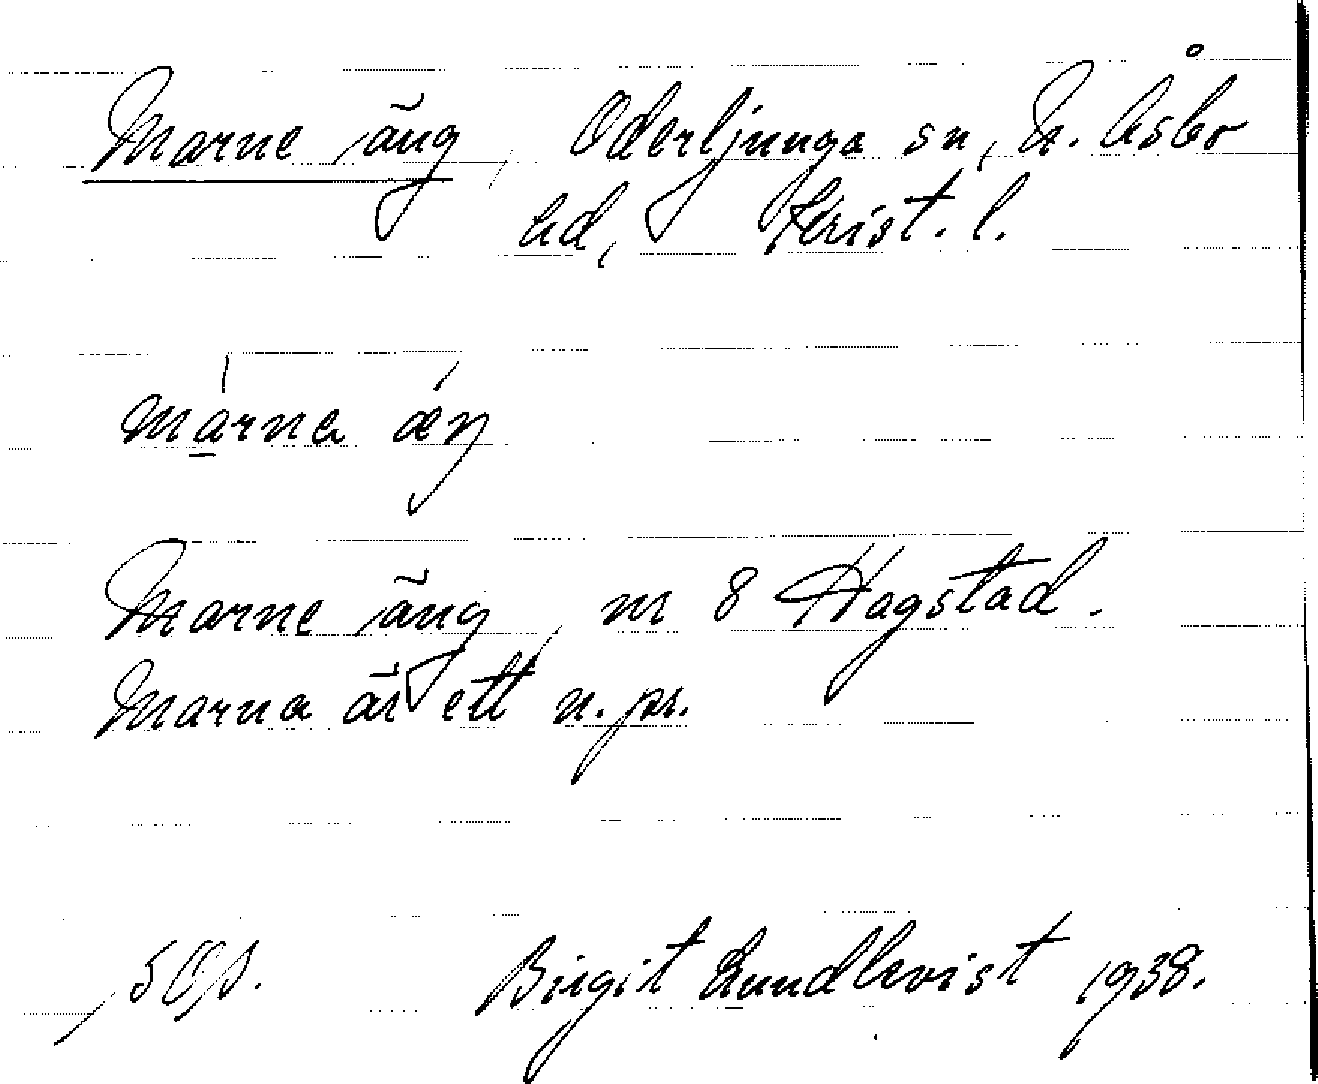 Marne äng, Oderljunga sn, N. Åsbo
hd, Krist. l.
márna ǽŋ
Marne äng, nr 8 Hagstad.
Marna är ett n. pr.
Birgit Lundkvist 1938.